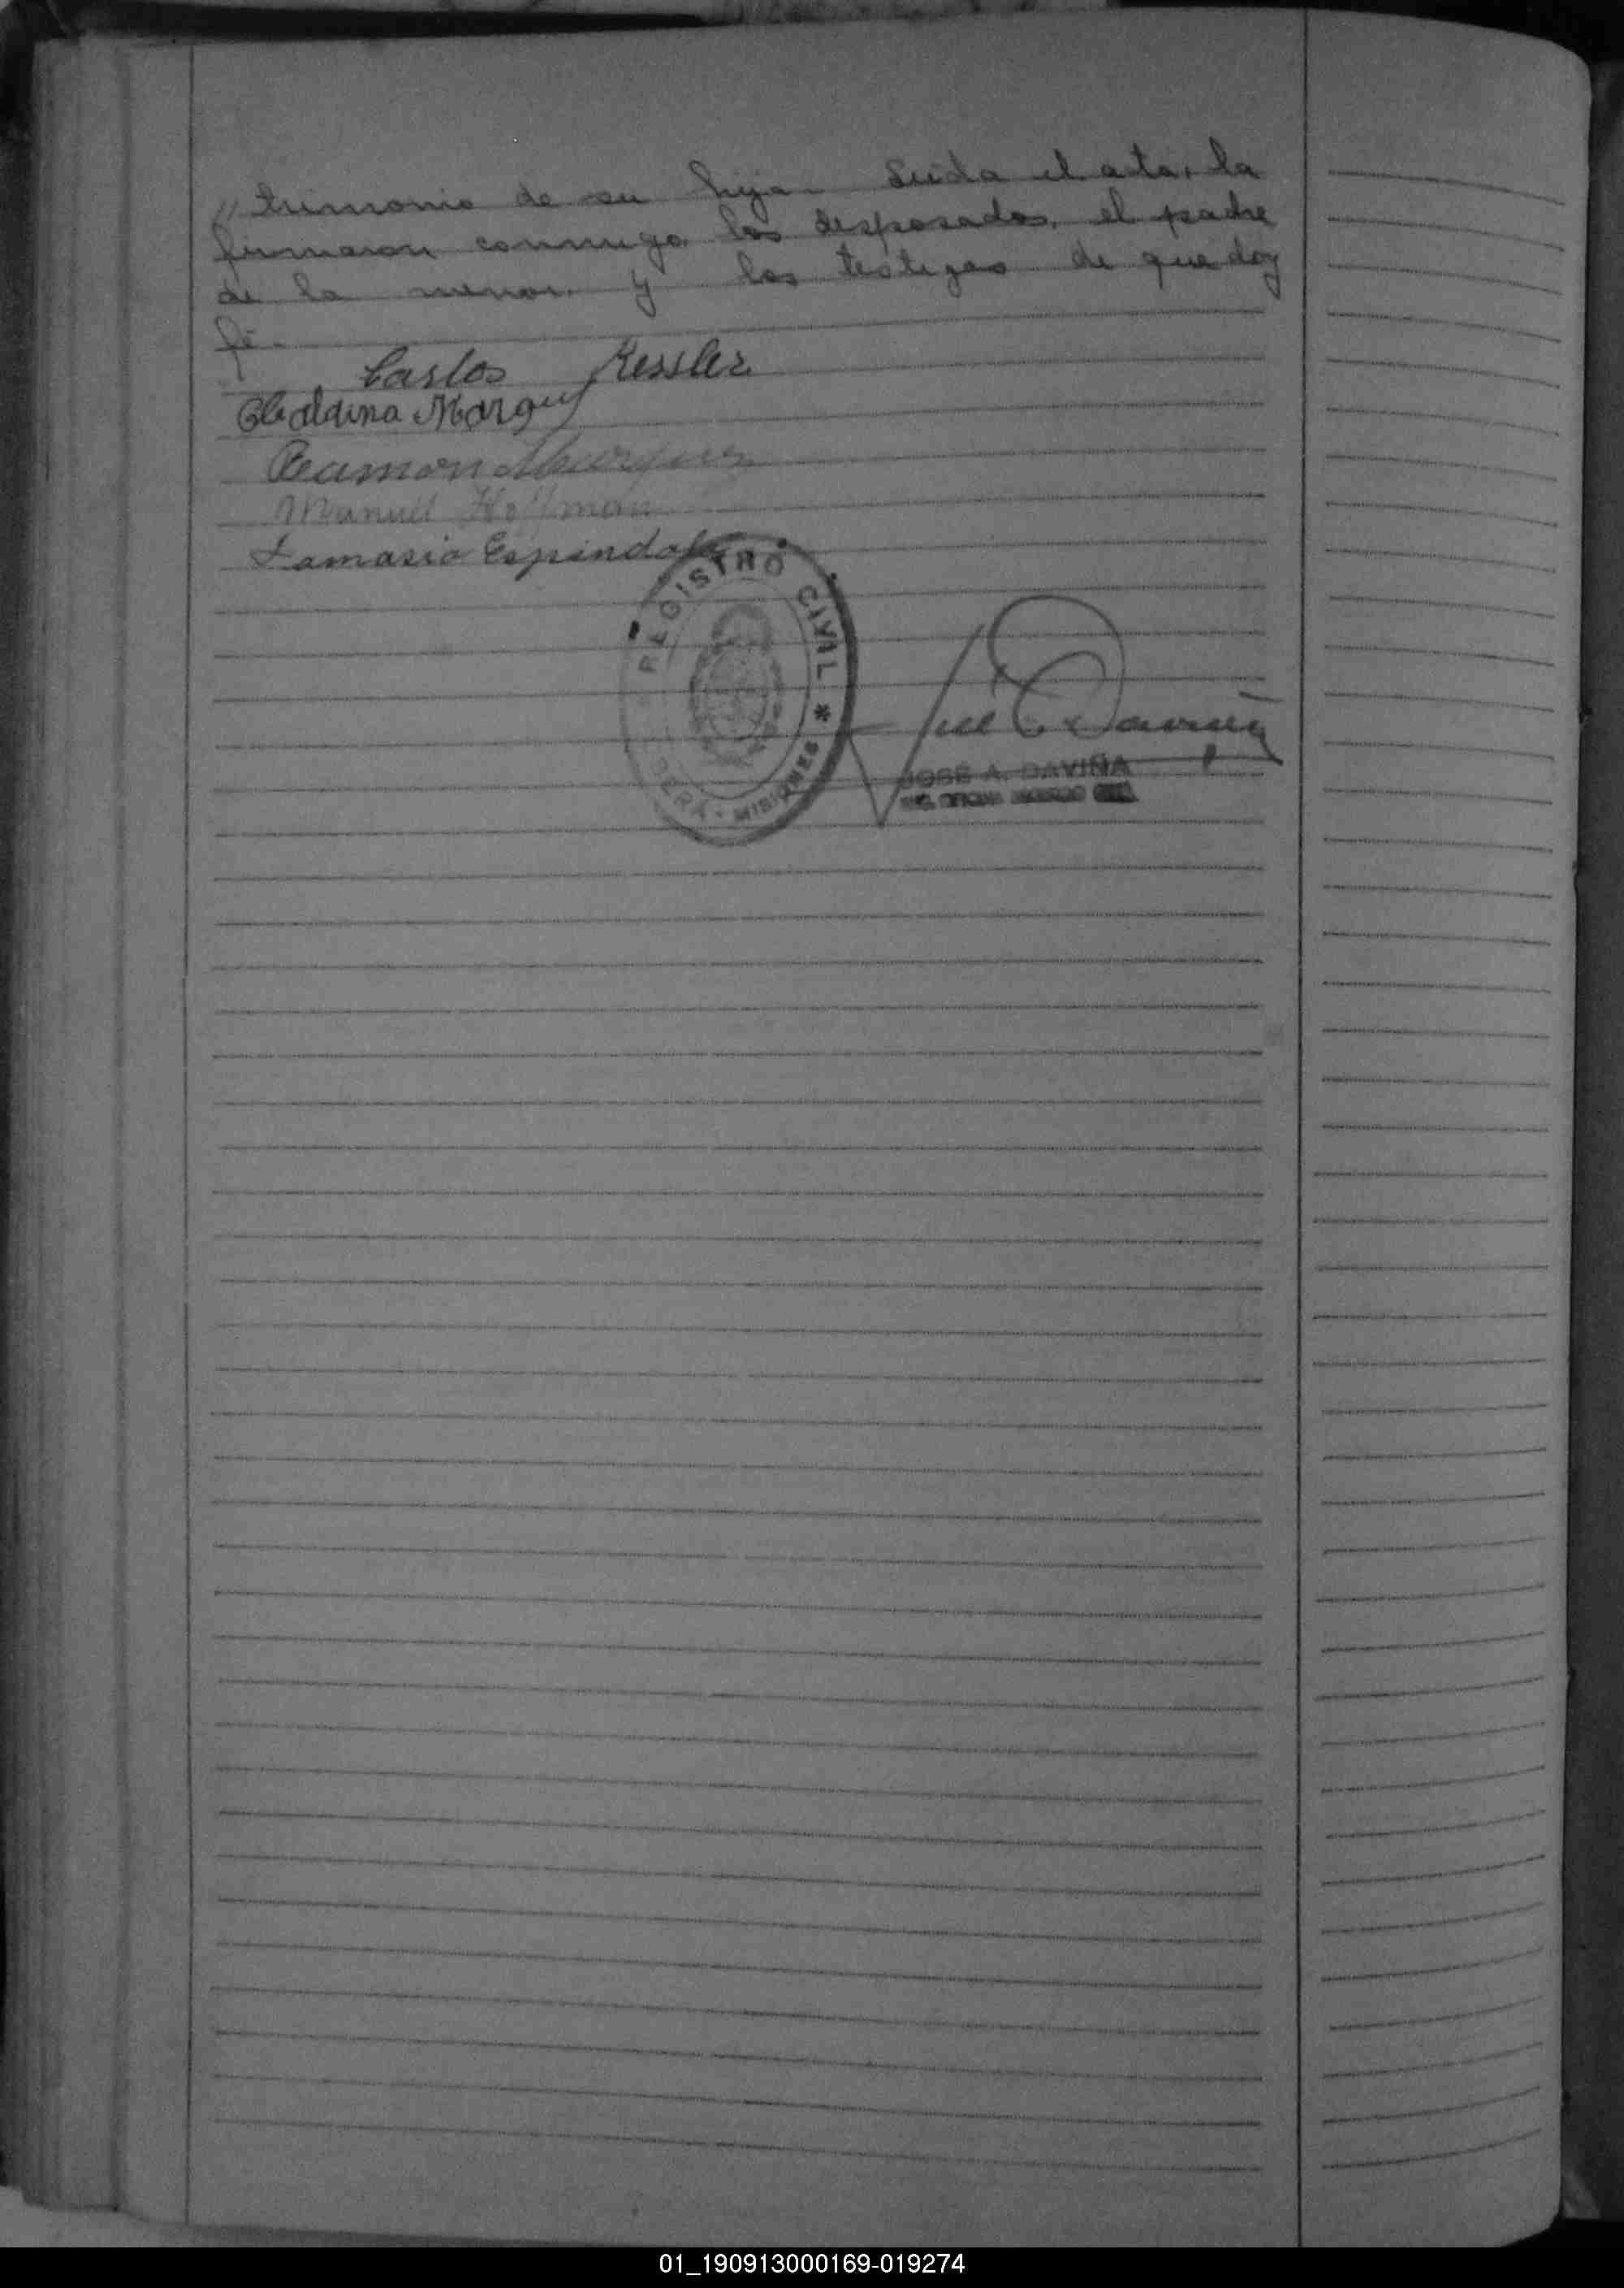 // trimonio de su hija.- Leida el acta, la
firmaron conmigo los desposados, el padre
de la menor, y los testigos de que doy
fé.-
Carlos Kessler
Marquez
Ramon Marquez
Manuel Hoffman
Damasio Espindola
REGISTRO CIVIL * MISIONES
JOSÉ A. DAVIÑA
01_190913000169-019274